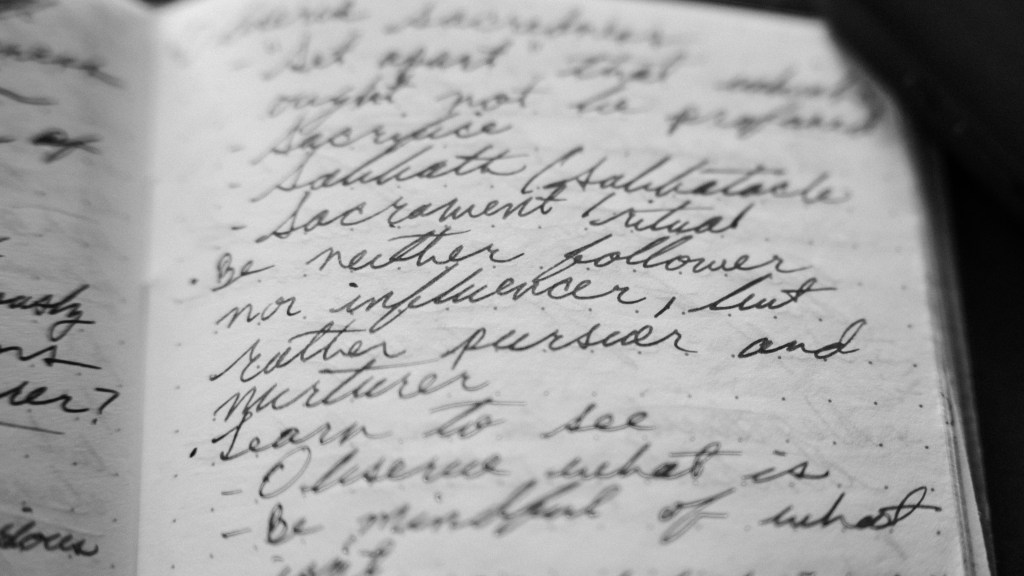 ously
rer?
sacredness
"Set apart" that which
ought not be profaned
- Sacrifice
- Sabbath / Sabbatacle
- Sacrament / ritual
. Be neither follower
nor influencer, but
rather pursuer and
nurturer
. Learn to see
- Observe what is
- Be mindful of what
isn't